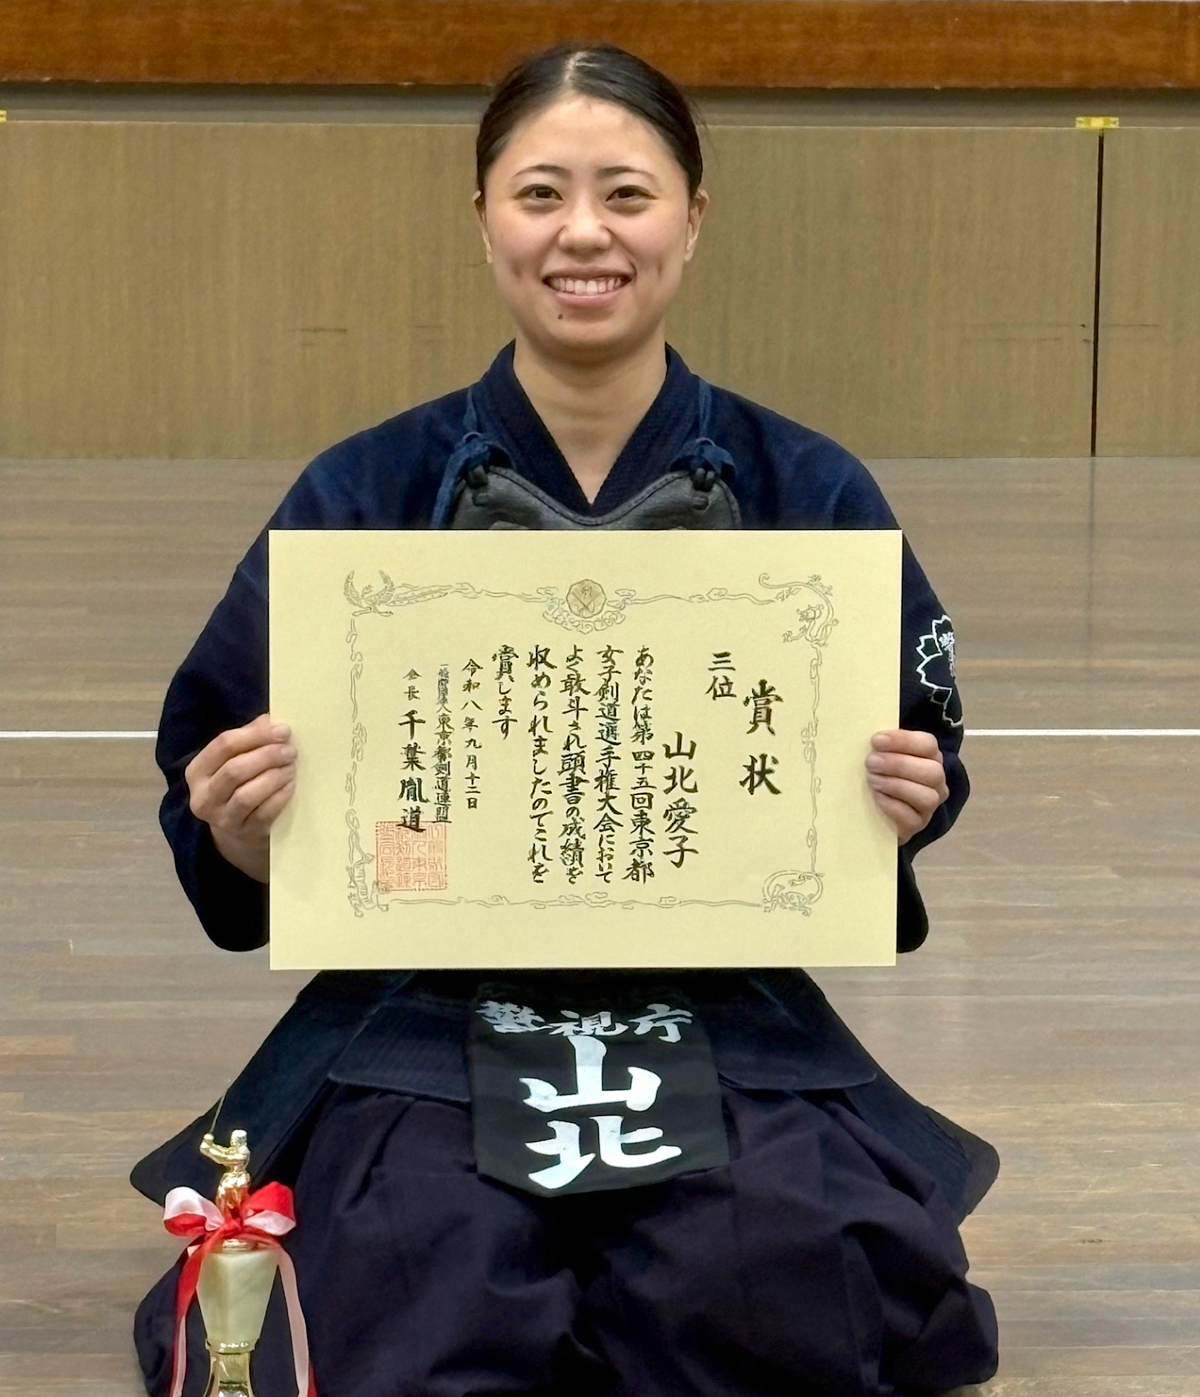 賞状
三位
山北愛子
あなたは第四十五回東京都
女子剣道選手権大会において
よく敢斗され頭書の成績を
収められましたのでこれを
賞します
令和八年九月十二日
一般財団法人東京都剣道連盟
会長 千葉胤道
警視庁
山北